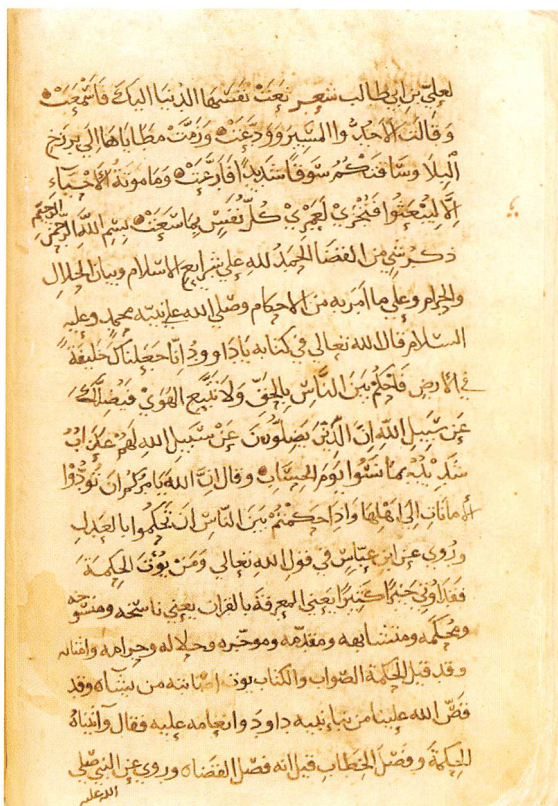 لعلي بن ابي طالب شعر نَعَتْ نَفْسَهَا الدنيا اليكَ فَاَسْمَعَتْ
وَقَالَت اَلَا جُدُّوا المَسِيرَ وَوَدَّعَتْ وَزَمَّتْ مَطَايَاهَا اِلَي بَرزَخ
اَلْبِلَا وَسَاقَتْكُمُ سَوْقًا شَدِيدًا فَاَزعَتْ وَمَا مَوْتَةُ الْاَحْيَاء
اِلَّا لِيُبْعَثُوا فَتُجْزَيْ لَعَمْرِيْ كُلُّ نَفْسٍ بِمَا سَعَتْ بِسْمِ اللّهِ الرَّحْمنِ الرحيم
ذكر شي من القضا الحَمدُ لله علي شرايع الاسلام وبيان الحلال
والحرام وعلي ما اَمَر به من الاحكام وصَلّي الله علي نبيّه محمد وعليه
السلام قال الله تعالي في كتابه يَا دَاوود اِنّا جَعَلناكَ خَليفَةً
في الاَرض فَاحْكُمْ بَينَ النَّاسِ بِالْحَقِّ وَلَا تَتَّبِعِ الهَوَيْ فَيُضِلَّكَ
عَن سَبِيل اللّهِ اِنَّ الَّذِيْنَ يَضِلُّوْنَ عَنْ سَبِيل اللهِ لَهُمْ عَذَابٌ
شَدِيْدٌ بِمَا نَسُوا يَومَ الحِسَابِ وقال اِنَّ اللهَ يَامُركُم اَن تُوَدُّوْا
الاَمَانَاتِ الَي اَهْلِهَا وَاِذَا حَكَمْتُمْ بَيْنَ النَّاسِ اَن تَحْكُمُوا بِالعَدلِ
ورُوي عن ابن عبّاس في قول الله تعالي وَمَنْ يُؤْتَ الحِكْمَةَ
فَقَد اُوتِيَ خَيْرًا كَثِيرًا يَعني المعرفَة بالقران يعني ناسخه ومنسوخه
ومحكمه ومتشابهه ومقدّمه وموخّره وحلاله وحرامه وامثاله
وقد قيل الحكمة الصّواب والكتاب يوتي اصابته من يشاه وقد
قصّ الله علينا من نبا نبيه داود وانعامه عليه فقال وَآتَينَاهُ
الحِكْمَةَ وَفَصْلَ الخِطَابِ قيل انه فصْل القضاه وروي عن النبي صلّي
الله عليه